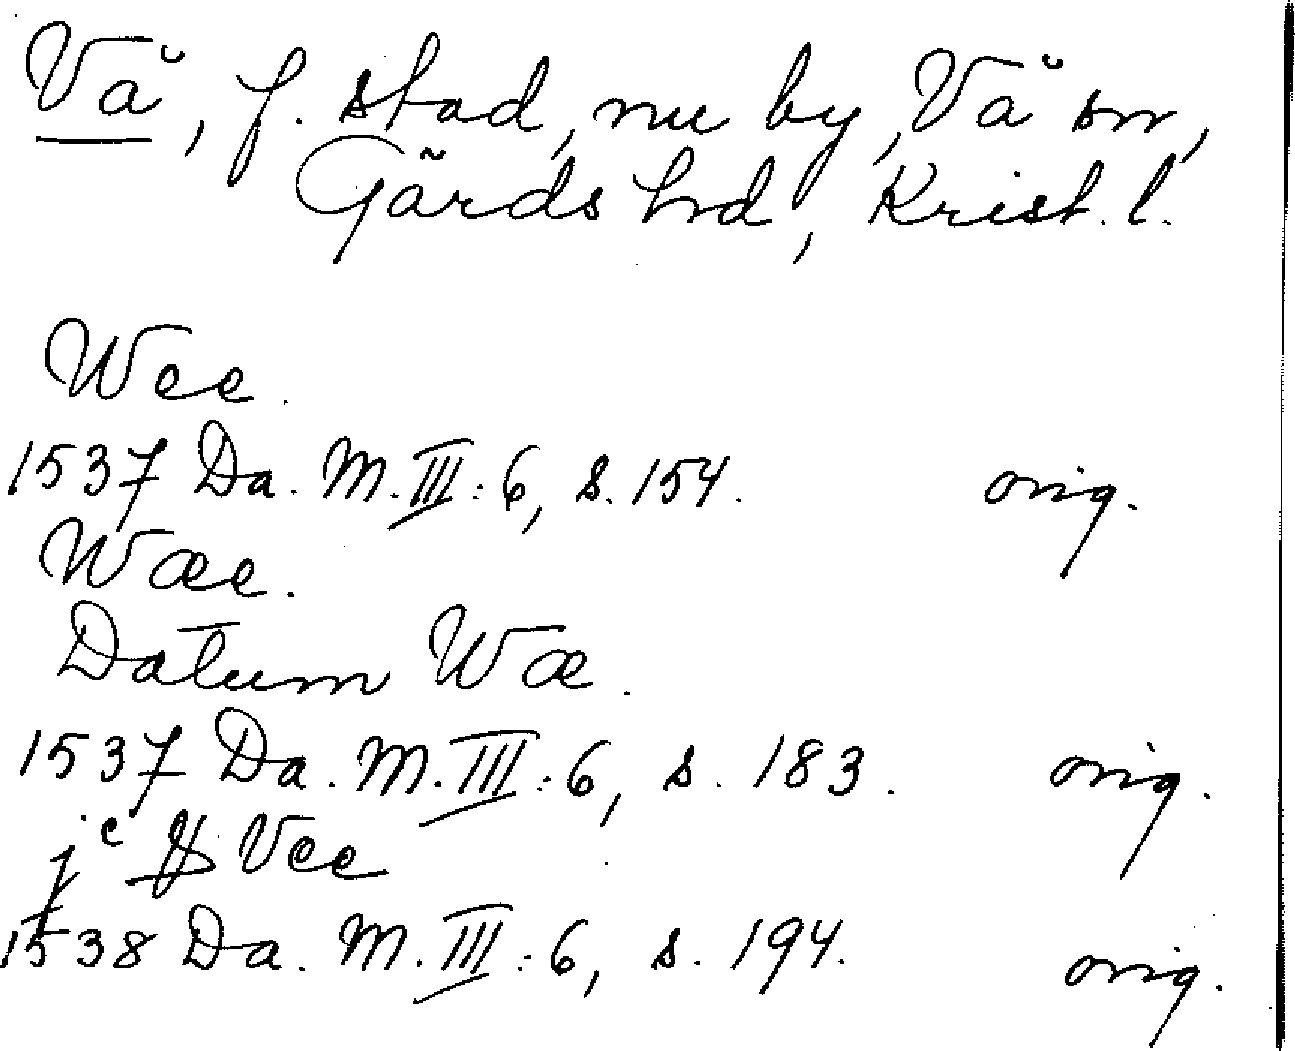 Vä, f. stad, nu by, Vä sn,
Gärds hd, Krist. l.
Wee.
1537 Da. M. III: 6, s. 154. orig.
Wæe.
Datum Wæ.
1537 Da. M. III: 6, s. 183. orig.
jc Vee
1538 Da. M. III: 6, s. 194. orig.